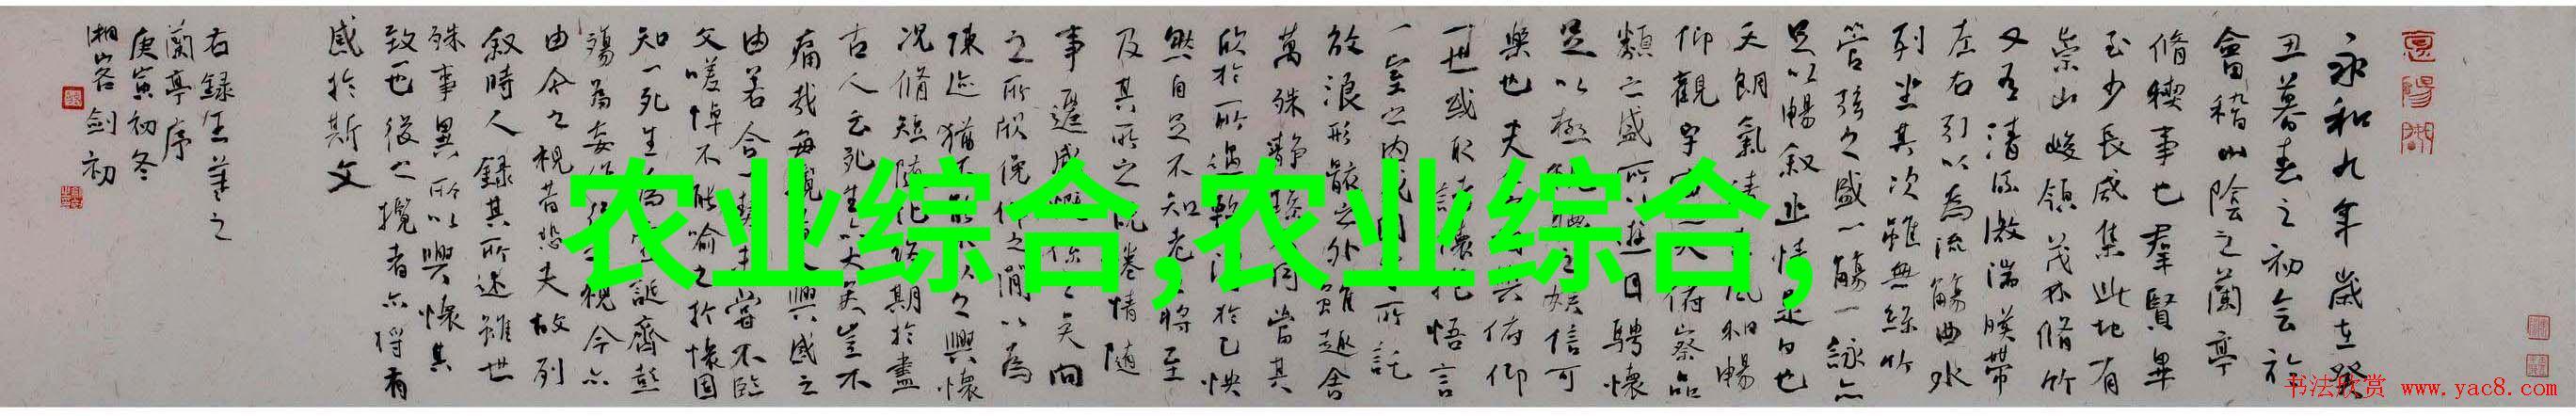 永和九年歲在癸
丑暮春之初会於
會稽山陰之蘭亭
脩禊事也羣賢畢
至少長咸集此地有
崇山峻領茂林脩竹
又有清流激湍暎帶
左右引以為流觴曲水
列坐其次雖無絲竹
管弦之盛一觴一詠亦
足以暢叙幽情是日也
天朗氣清
和暢
仰觀宇
俯察品
類之盛所以遊目騁懷
足以極
娛信可
樂也夫
俯仰
一世或取諸懷抱悟言
一室之内
所託
放浪形骸之外雖趣舍
萬殊静躁
同當其
欣於所遇暫
於己怏
然自足不知老之將至
及其所之既惓情隨
事遷感慨係之矣向
之所欣俛仰之閒以為
陳迹猶不
之興懷
况脩短隨化終期於盡
古人云死生亦大矣豈不
痛哉每覽
興感之
由若合一契未嘗不臨
文嗟悼不能喻之於懷固
知一死生為
誕齊彭
殤為妄作
視今亦
由今之視昔悲夫故列
叙時人錄其所述雖世
殊事異所以興懷其
致一也後之攬者亦将有
感於斯文
右録王羲之
蘭亭序
庚寅初冬
剑初
农业综合,农业综合,
书法欣赏 www.yac8.com